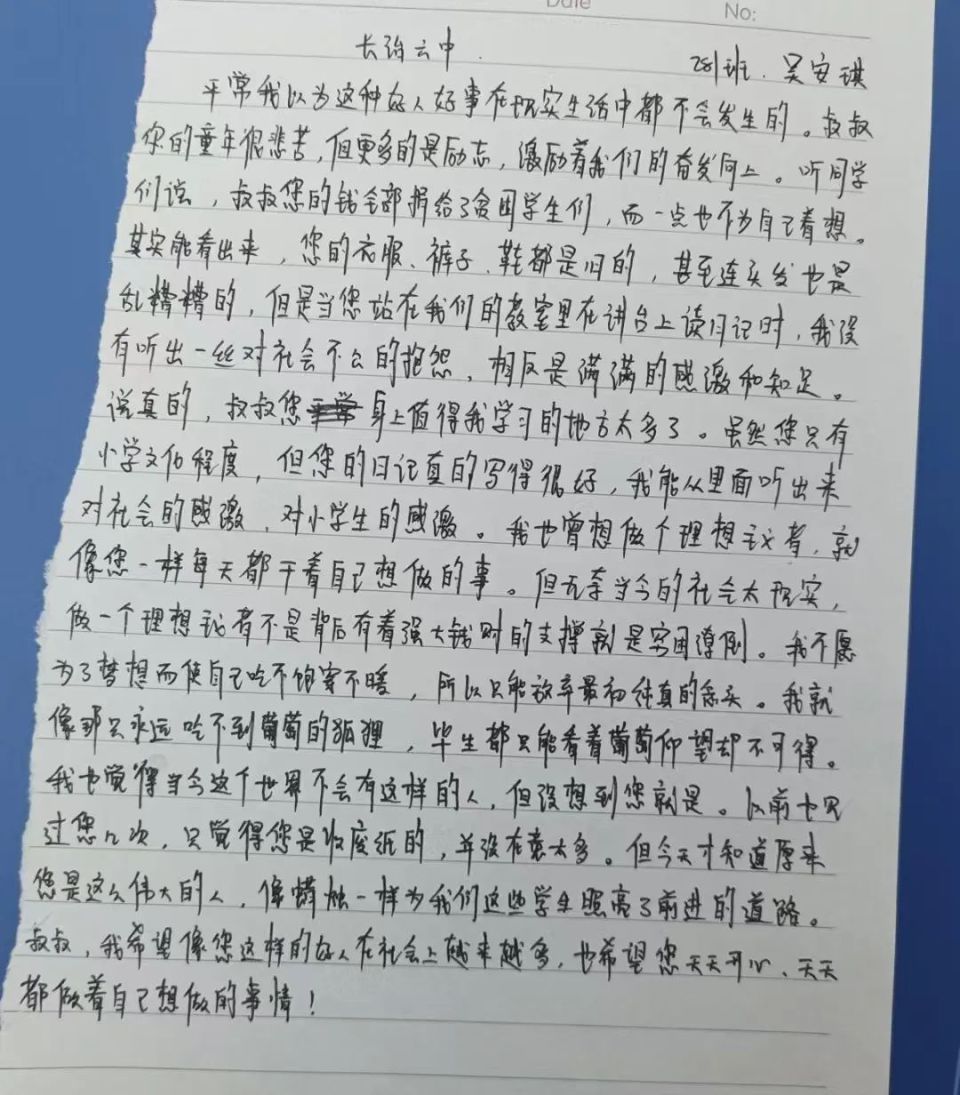 Date No:
长治六中. 281班. 吴安琪
平常我以为这种好人好事在现实生活中都不会发生的。叔叔
您的童年很悲苦,但更多的是励志,激励着我们的奋发向上。听同学
们说,叔叔您的钱全部捐给了贫困学生们,而一点也不为自己着想。
其实能看出来,您的衣服、裤子、鞋都是旧的,甚至连头发也是
乱糟糟的,但是当您站在我们的教室里在讲台上读日记时,我没
有听出一丝对社会不公的抱怨,相反是满满的感激和知足。
说真的,叔叔您身上值得我学习的地方太多了。虽然您只有
小学文化程度,但您的日记真的写得很好,我能从里面听出来
对社会的感激,对小学生的感激。我也曾想做个理想主义者,就
像您一样每天都干着自己想做的事。但无奈当今的社会太现实,
做一个理想主义者不是背后有着强大钱财的支撑就是穷困潦倒。我不愿
为了梦想而使自己吃不饱穿不暖,所以只能放弃最初纯真的念头。我就
像那只永远吃不到葡萄的狐狸,毕生都只能看着葡萄仰望却不可得。
我也觉得当今这个世界不会有这样的人,但没想到您就是。以前也见
过您几次,只觉得您是收废纸的,并没在意太多。但今天才知道原来
您是这么伟大的人,像蜡烛一样为我们这些学生照亮了前进的道路。
叔叔,我希望像您这样的好人在社会上越来越多,也希望您天天开心、天天
都做着自己想做的事情!